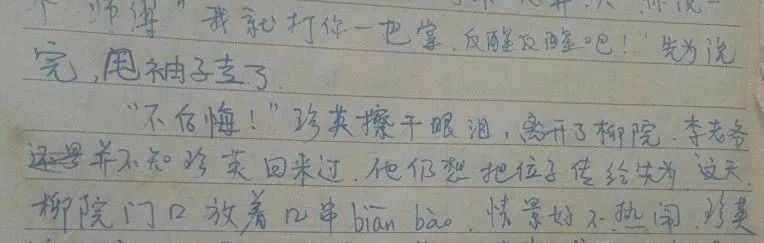 个师傅"我就打你一巴掌.反醒反醒吧!"先为说
完,甩袖子走了.
"不后悔!"珍英擦干眼泪,离开了柳院.李老爷
并不知珍英回来过.他仍想把位子传给先为.这天,
柳院门口放着几串biān bào.情景好不热闹.珍英